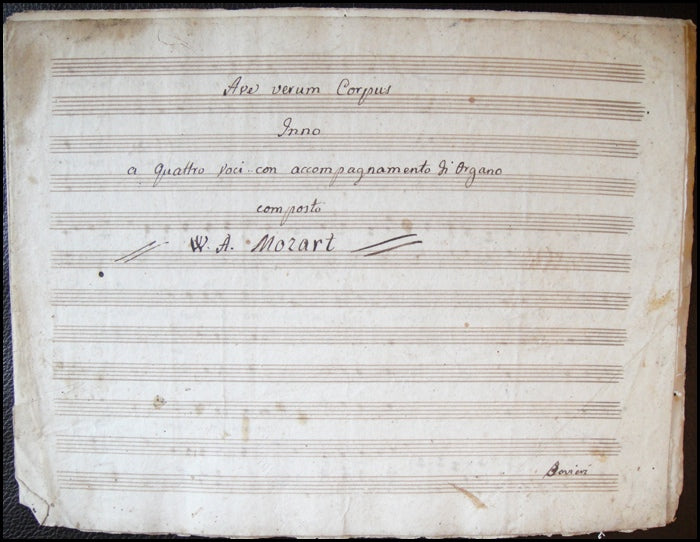 Ave verum Corpus
Inno
a Quattro Voci con accompagnamento di Organo
composto
W. A. Mozart